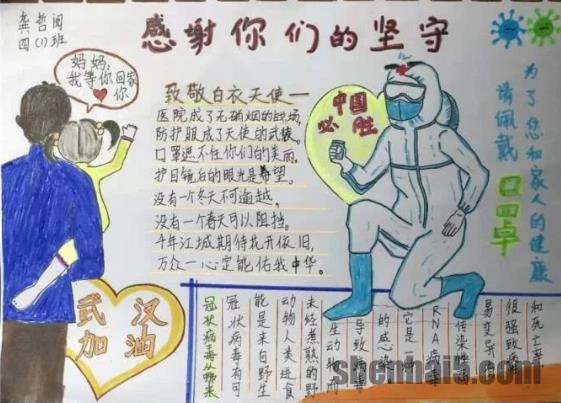 龚哲闻
四(1)班
感谢你们的坚守
妈妈:
我等你回家
你
致敬白衣天使一
医院成了无硝烟的战场,
防护服成了天使的武装。
口罩遮不住你们的美丽,
护目镜后的眼光是希望。
没有一个冬天不可逾越,
没有一个春天可以阻挡。
千年江城期待花开依旧,
万众一心定能佑我中华。
中国
必胜
为了您和家人的健康
请佩戴
口罩
武汉
加油
冠状病毒从哪来
冠状病毒有可
能是来自野生
动物人类进食
未经煮熟的野
生动物而
导致病毒
的感染
它是
RNA病毒
传染性
易变异
很强致病
和死亡率
shenmai5.com